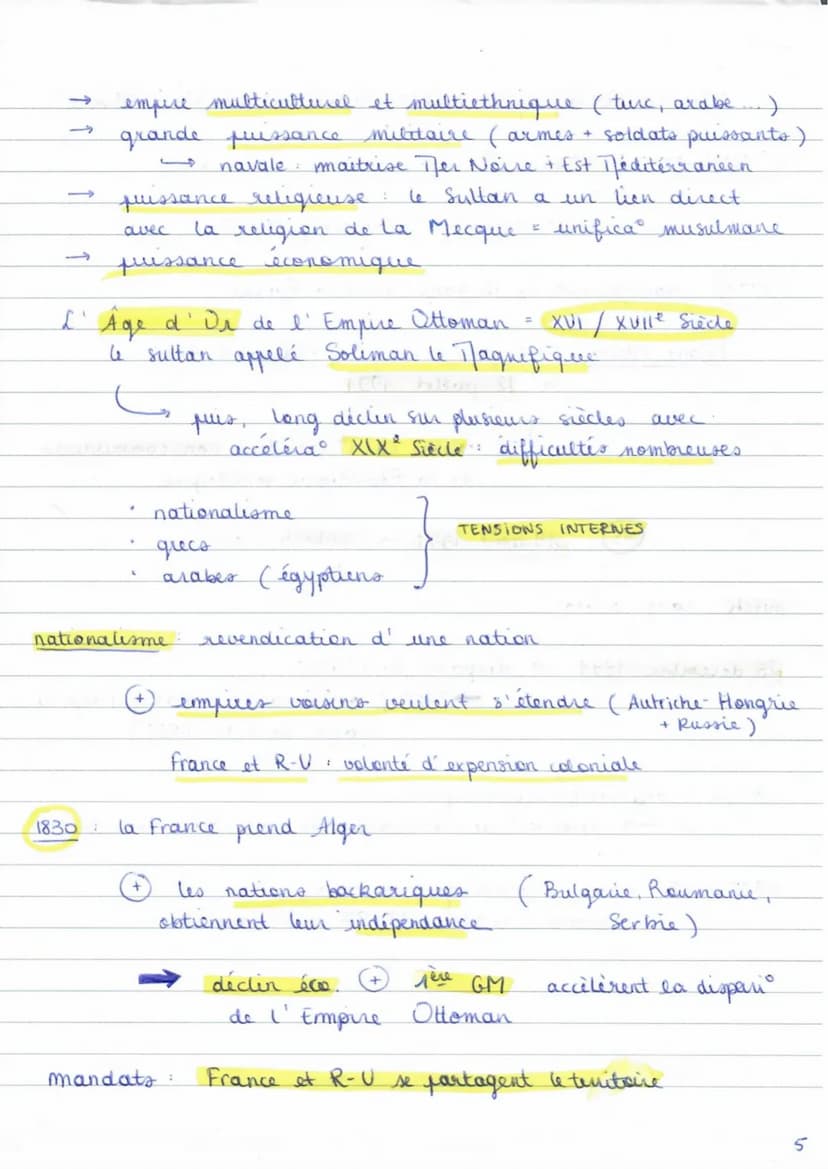 → empire multiculturel et multiethnique ( turc, arabe ... )
→ grande puissance militaire ( armes + soldats puissants )
↳ navale : maitrise Mer Noire + Est Méditérranéen
→ puissance religieuse : le Sultan a un lien direct
avec la religion de la Mecque = unifica° musulmane
→ puissance économique
L' Âge d' Or de l' Empire Ottoman = XVI / XVIIe Siècle
le sultan appelé Soliman le Magnifique
↳ puis, long déclin sur plusieurs siècles avec
accéléra° XIXe Siècle : difficultés nombreuses
• nationalisme
• grecs
• arabes ( égyptiens
} TENSIONS INTERNES
nationalisme : revendication d' une nation
⊕ empires voisins veulent s'étendre ( Autriche-Hongrie
+ Russie )
France et R-U : volonté d'expension coloniale
1830 : la France prend Alger
⊕ les nations backariques ( Bulgarie, Roumanie,
obtiennent leur indépendance Serbie )
➡ déclin éco. ⊕ 1ère GM accélèrent la dispari°
de l' Empire Ottoman
mandats : France et R-U se partagent le territoire
5